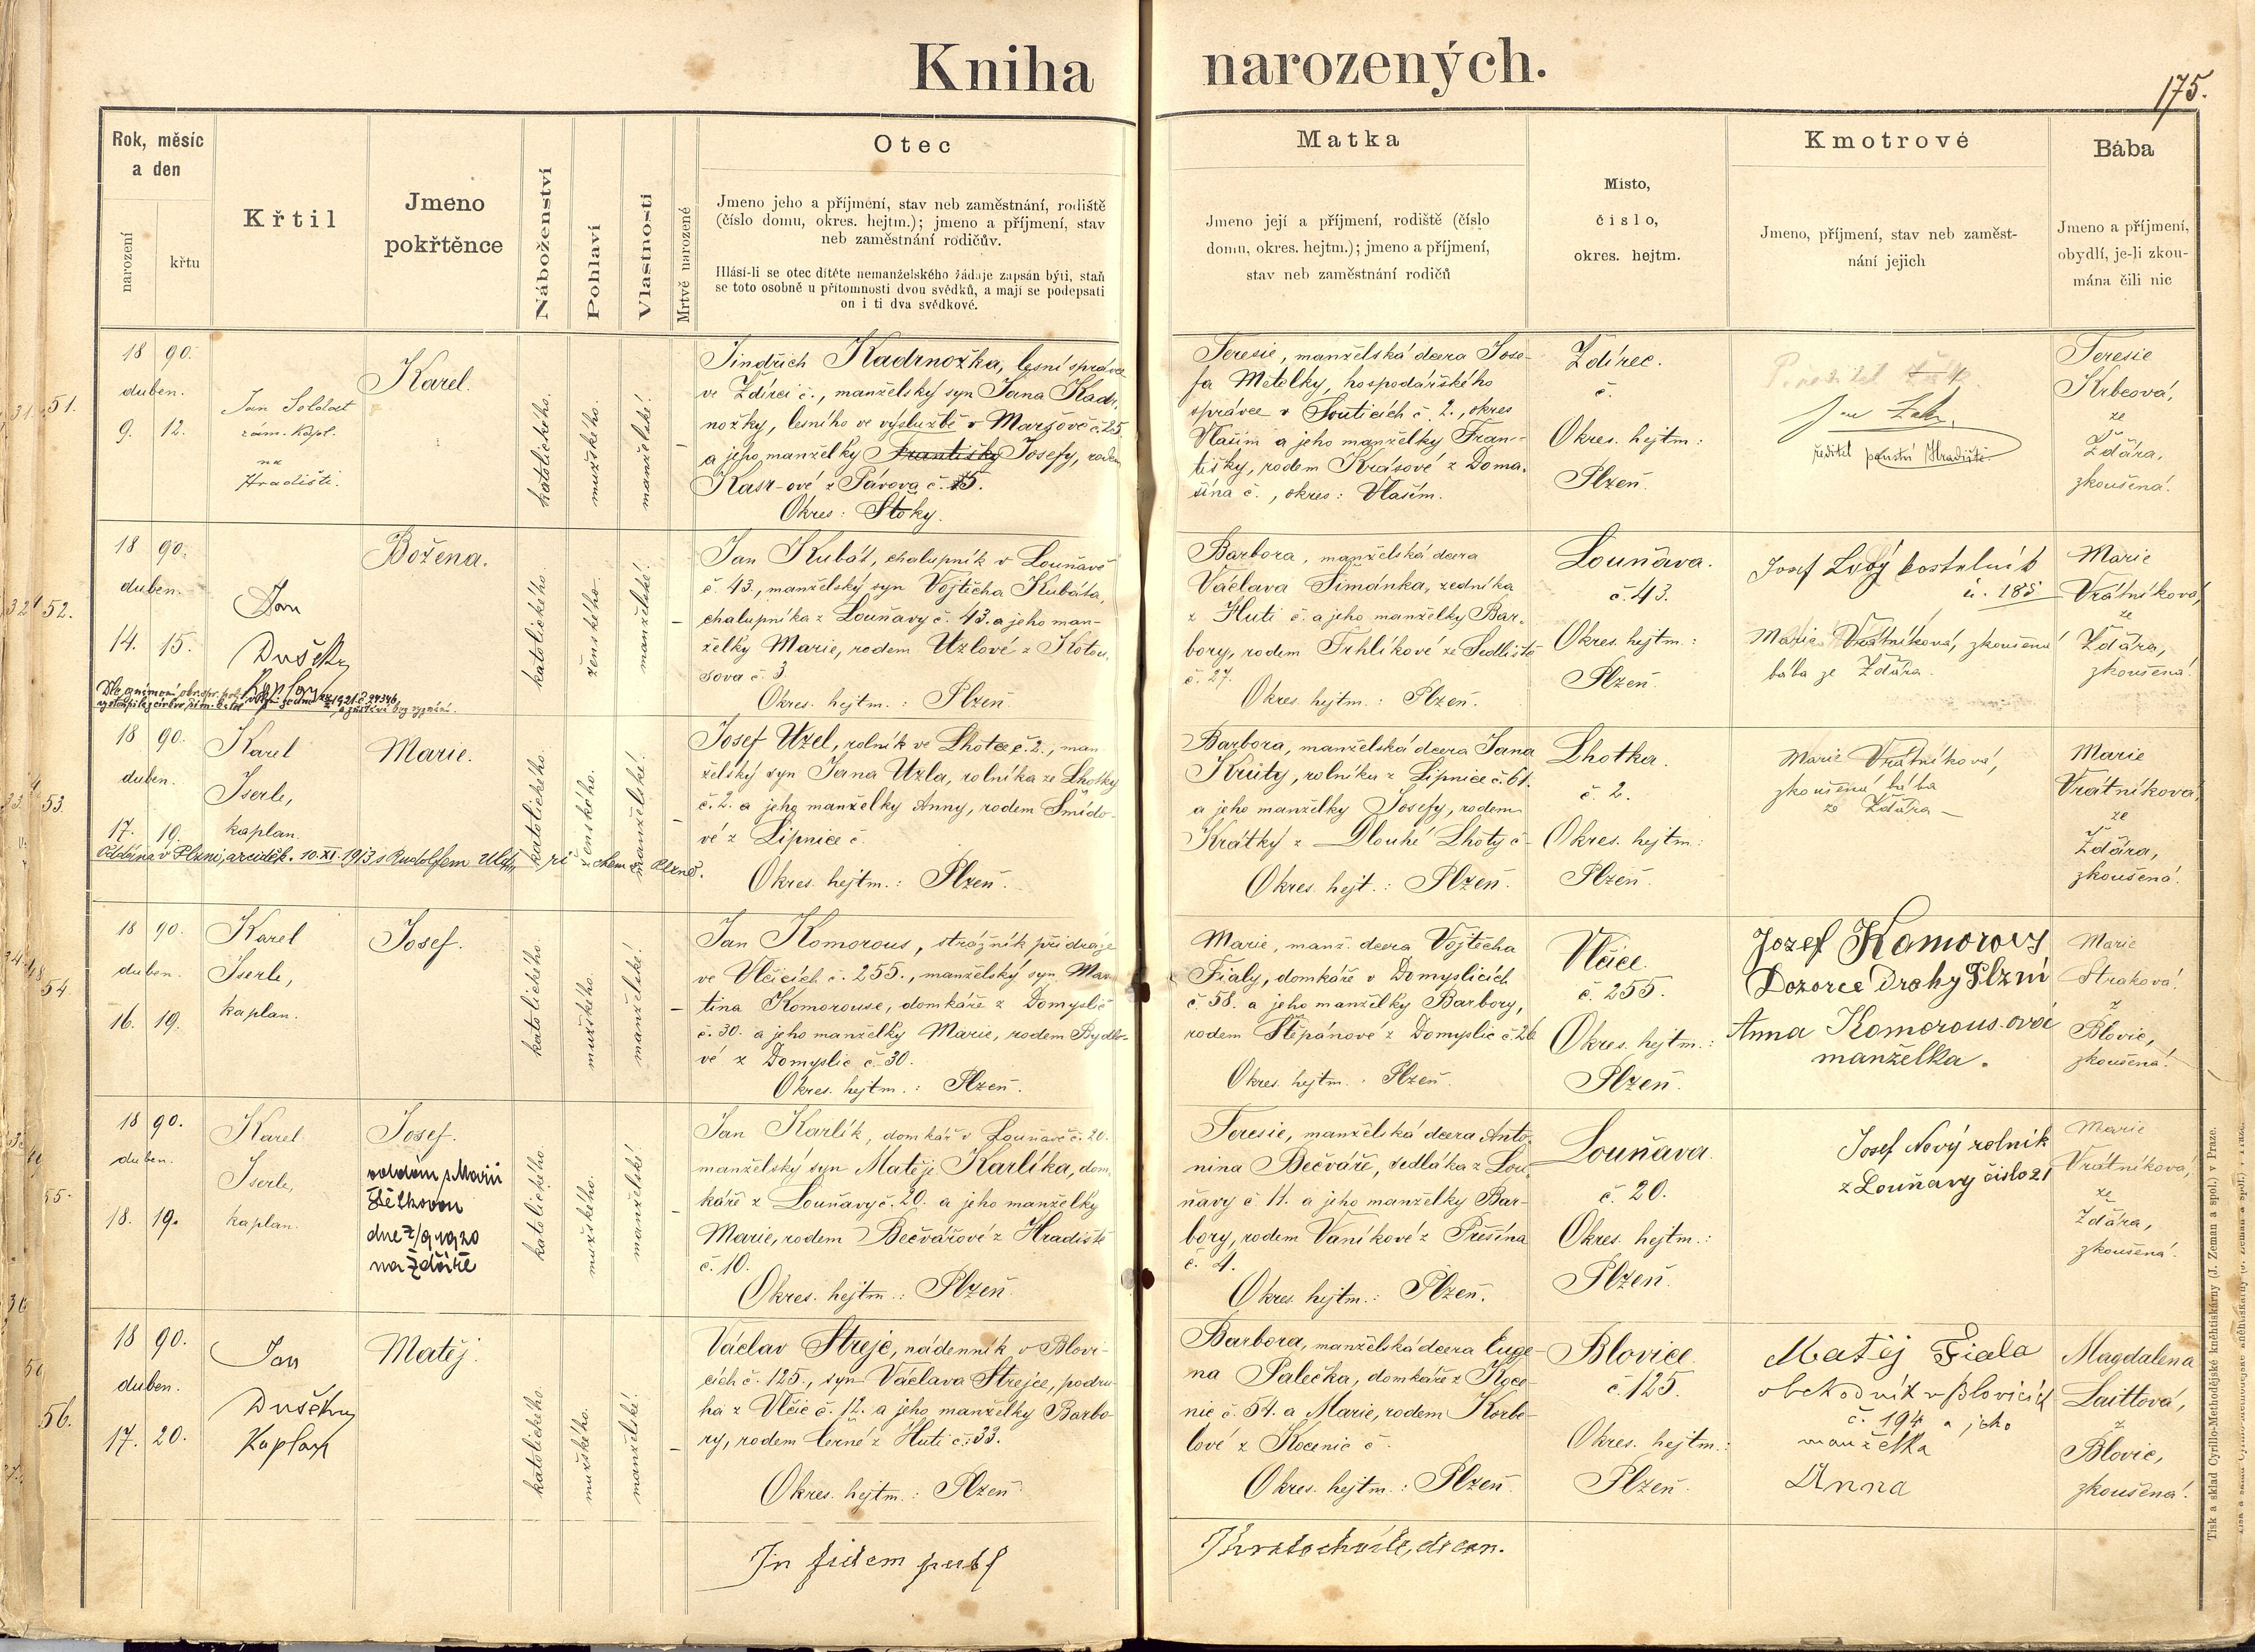 Kniha narozených.
175.
Rok, měsíc
a den
narození
křtu
Křtil
Jmeno
pokřtěnce
Náboženství
Pohlaví
Vlastnosti
Mrtvě narozené
Otec
Jmeno jeho a příjmení, stav neb zaměstnání, rodiště
(číslo domu, okres. hejtm.); jmeno a příjmení, stav
neb zaměstnání rodičův.
Hlásí-li se otec dítěte nemanželského žádaje zapsán býti, staň
se toto osobně u přítomnosti dvou svědků, a mají se podepsati
on i ti dva svědkové.
Matka
Jmeno její a příjmení, rodiště (číslo
domu, okres. hejtm.); jmeno a příjmení,
stav neb zaměstnání rodičů
Místo,
číslo,
okres. hejtm.
Kmotrové
Jmeno, příjmení, stav neb zaměst-
nání jejich
Bába
Jmeno a příjmení,
obydlí, je-li zkou-
mána čili nic
51.
18 90.
duben.
9. 12.
Jan Soldat
zám. kapl.
na
Hradišti.
Karel.
katolického.
mužského.
manželské.
Jindřich Kadrnožka, lesní správce
ve Ždírci č., manželský syn Jana Kadr-
nožky, lesního ve výslužbě v Maršově č. 25.
a jeho manželky Františky Josefy, rodem
Kasr-ové z Pávova č. 15.
Okres: Štoky.
Teresie, manželská dcera Jose-
fa Mětelky, hospodářského
správce v Souticích č. 2., okres
Vlašim a jeho manželky Fran-
tišky, rodem Krásové z Doma-
šína č. , okres: Vlašim.
Ždírec.
č.
Okres. hejtm:
Plzeň.
Jan
ředitel panství Hradiště
Teresie
Krbcová,
ze
Žďára,
zkoušená.
52.
18 90.
duben.
14. 15.
Jan
Dušek
kaplan
Božena.
katolického.
ženského.
manželské.
Jan Kubát, chalupník v Louňavě
č. 43., manželský syn Vojtěcha Kubáta,
chalupníka z Louňavy č. 43. a jeho man-
želky Marie, rodem Uzlové z Kotou-
sova č. 3.
Okres. hejtm.: Plzeň.
Barbora, manželská dcera
Václava Šimánka, zedníka
z Huti č. a jeho manželky Bar-
bory, rodem Trhlíkové ze Sedliště
č. 27.
Okres. hejtm.: Plzeň.
Louňava.
č. 43.
Okres. hejtm.:
Plzeň.
Josef Lobý kostelník
č. 185
Marie Vrátníková, zkoušená
bába ze Žďára.
Marie
Vrátníková,
ze
Žďára,
zkoušená.
53
18 90.
duben.
17. 19.
Karel
Iserle,
kaplan.
Marie.
Oddána v Plzni, arciděk. 10. XI. 1913 s Rudolfem
katolického.
ženského.
manželské.
Josef Uzel, rolník ve Lhotce č. 2., man-
želský syn Jana Uzla, rolníka ze Lhotky
č. 2. a jeho manželky Anny, rodem Šmído-
vé z Lipnice č.
Okres. hejtm.: Plzeň.
Barbora, manželská dcera Jana
Kruty, rolníka z Lipnice č. 61.
a jeho manželky Josefy, rodem
Krátký z Dlouhé Lhoty č.
Okres. hejt.: Plzeň.
Lhotka.
č. 2.
Okres. hejtm.:
Plzeň.
Marie Vrátníková,
zkoušená bába
ze Žďára
Marie
Vrátníková,
ze
Žďára,
zkoušená.
54.
18 90.
duben.
16. 19.
Karel
Iserle,
kaplan.
Josef.
katolického.
mužského.
manželské.
Jan Komorous, strážník při dráze
ve Vlčicích č. 255., manželský syn Mar-
tina Komorouse, domkáře z Domyslic
č. 30. a jeho manželky Marie, rodem Bydlo-
vé z Domyslic č. 30.
Okres. hejtm.: Plzeň.
Marie, manž. dcera Vojtěcha
Fialy, domkáře v Domyslicích
č. 58. a jeho manželky Barbory,
rodem Štěpánové z Domyslic č. 26
Okres. hejtm.: Plzeň.
Vlčice.
č. 255.
Okres. hejtm.:
Plzeň.
Jozef Komorous
Dozorce Drahy Plzni
Anna Komorous-ová
manželka.
Marie
Straková,
z
Blovic,
zkoušená.
55.
18 90.
duben.
18. 19.
Karel
Iserle,
kaplan.
Josef.
oddán s Marií
Bělkovou
dne 7/9 1920
na Žďáře
katolického
mužského.
manželské.
Jan Karlík, domkář v Louňavě č. 20.
manželský syn Matěje Karlíka, dom-
káře z Louňavy č. 20. a jeho manželky
Marie, rodem Bečvářové z Hradiště
č. 10.
Okres. hejtm.: Plzeň.
Teresie, manželská dcera Anto-
nina Bečváře, sedláka z Lou-
ňavy č. 11. a jeho manželky Bar-
bory, rodem Vaníkové z Přešína
č. 4.
Okres. hejtm.: Plzeň.
Louňava.
č. 20.
Okres. hejtm.:
Plzeň.
Josef Nový rolník
z Louňavy číslo 21
Marie
Vrátníková,
ze
Žďára,
zkoušená.
56.
18 90.
duben.
17. 20.
Jan
Dušek
Kaplan
Matěj.
katolického.
mužského.
manželské.
Václav Strejc, nádenník v Blovi-
cích č. 125., syn Václava Strejce, podru-
ha z Vlčic č. 12. a jeho manželky Barbo-
ry, rodem Černé z Huti č. 33.
Okres. hejtm.: Plzeň
Barbora, manželská dcera Euge-
na Palečka, domkáře z Koce-
nic č. 54. a Marie, rodem Korbe-
lové z Kocenic č.
Okres. hejtm.: Plzeň.
Blovice.
č. 125.
Okres. hejtm.:
Plzeň.
Matěj Fiala
obchodník v Blovicích
č. 194 a jeho
manželka
Anna
Magdalena
Laittová,
z
Blovic,
zkoušená.
In fidem publ
Chratochvile, decan.
Tisk a sklad Cyrillo-Methodějské knihtiskárny (J. Zeman a spol.) v Praze.